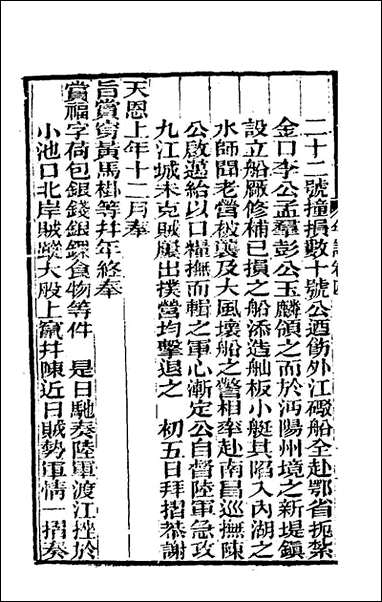 二十二號撞損數十號公迺飭外江礮船全赴鄂省扼紮
金口李公孟羣彭公玉麟領之而於沔陽州境之新堤鎮
設立船厰修補已損之船添造舢板小艇其陷入內湖之
水師聞老營被襲及大風壞船之警相率赴南昌巡撫陳
公啟邁給以口糧撫而輯之軍心漸定公自督陸軍急攻
九江城未克賊屢出撲營均擊退之　初五日拜摺恭謝
天恩上年十二月奉
旨賞穿黃馬褂等件年終奉
賞福字荷包銀錢銀錁食物等件　是日馳奏陸軍渡江挫於
小池口北岸賊蹤大股上竄并陳近日賊勢軍情一摺奏